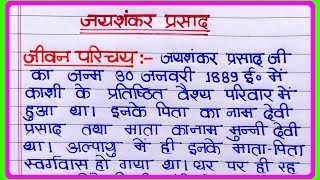 जयशंकर प्रसाद
जीवन परिचय :- जयशंकर प्रसाद जी
का जन्म 30 जनवरी 1889 ई० में
काशी के प्रतिष्ठित वैश्य परिवार में
हुआ था। इनके पिता का नाम देवी
प्रसाद तथा माता का नाम मुन्नी देवी
था। अल्पायु में ही इनके माता-पिता
स्वर्गवास हो गया था। घर पर ही रह